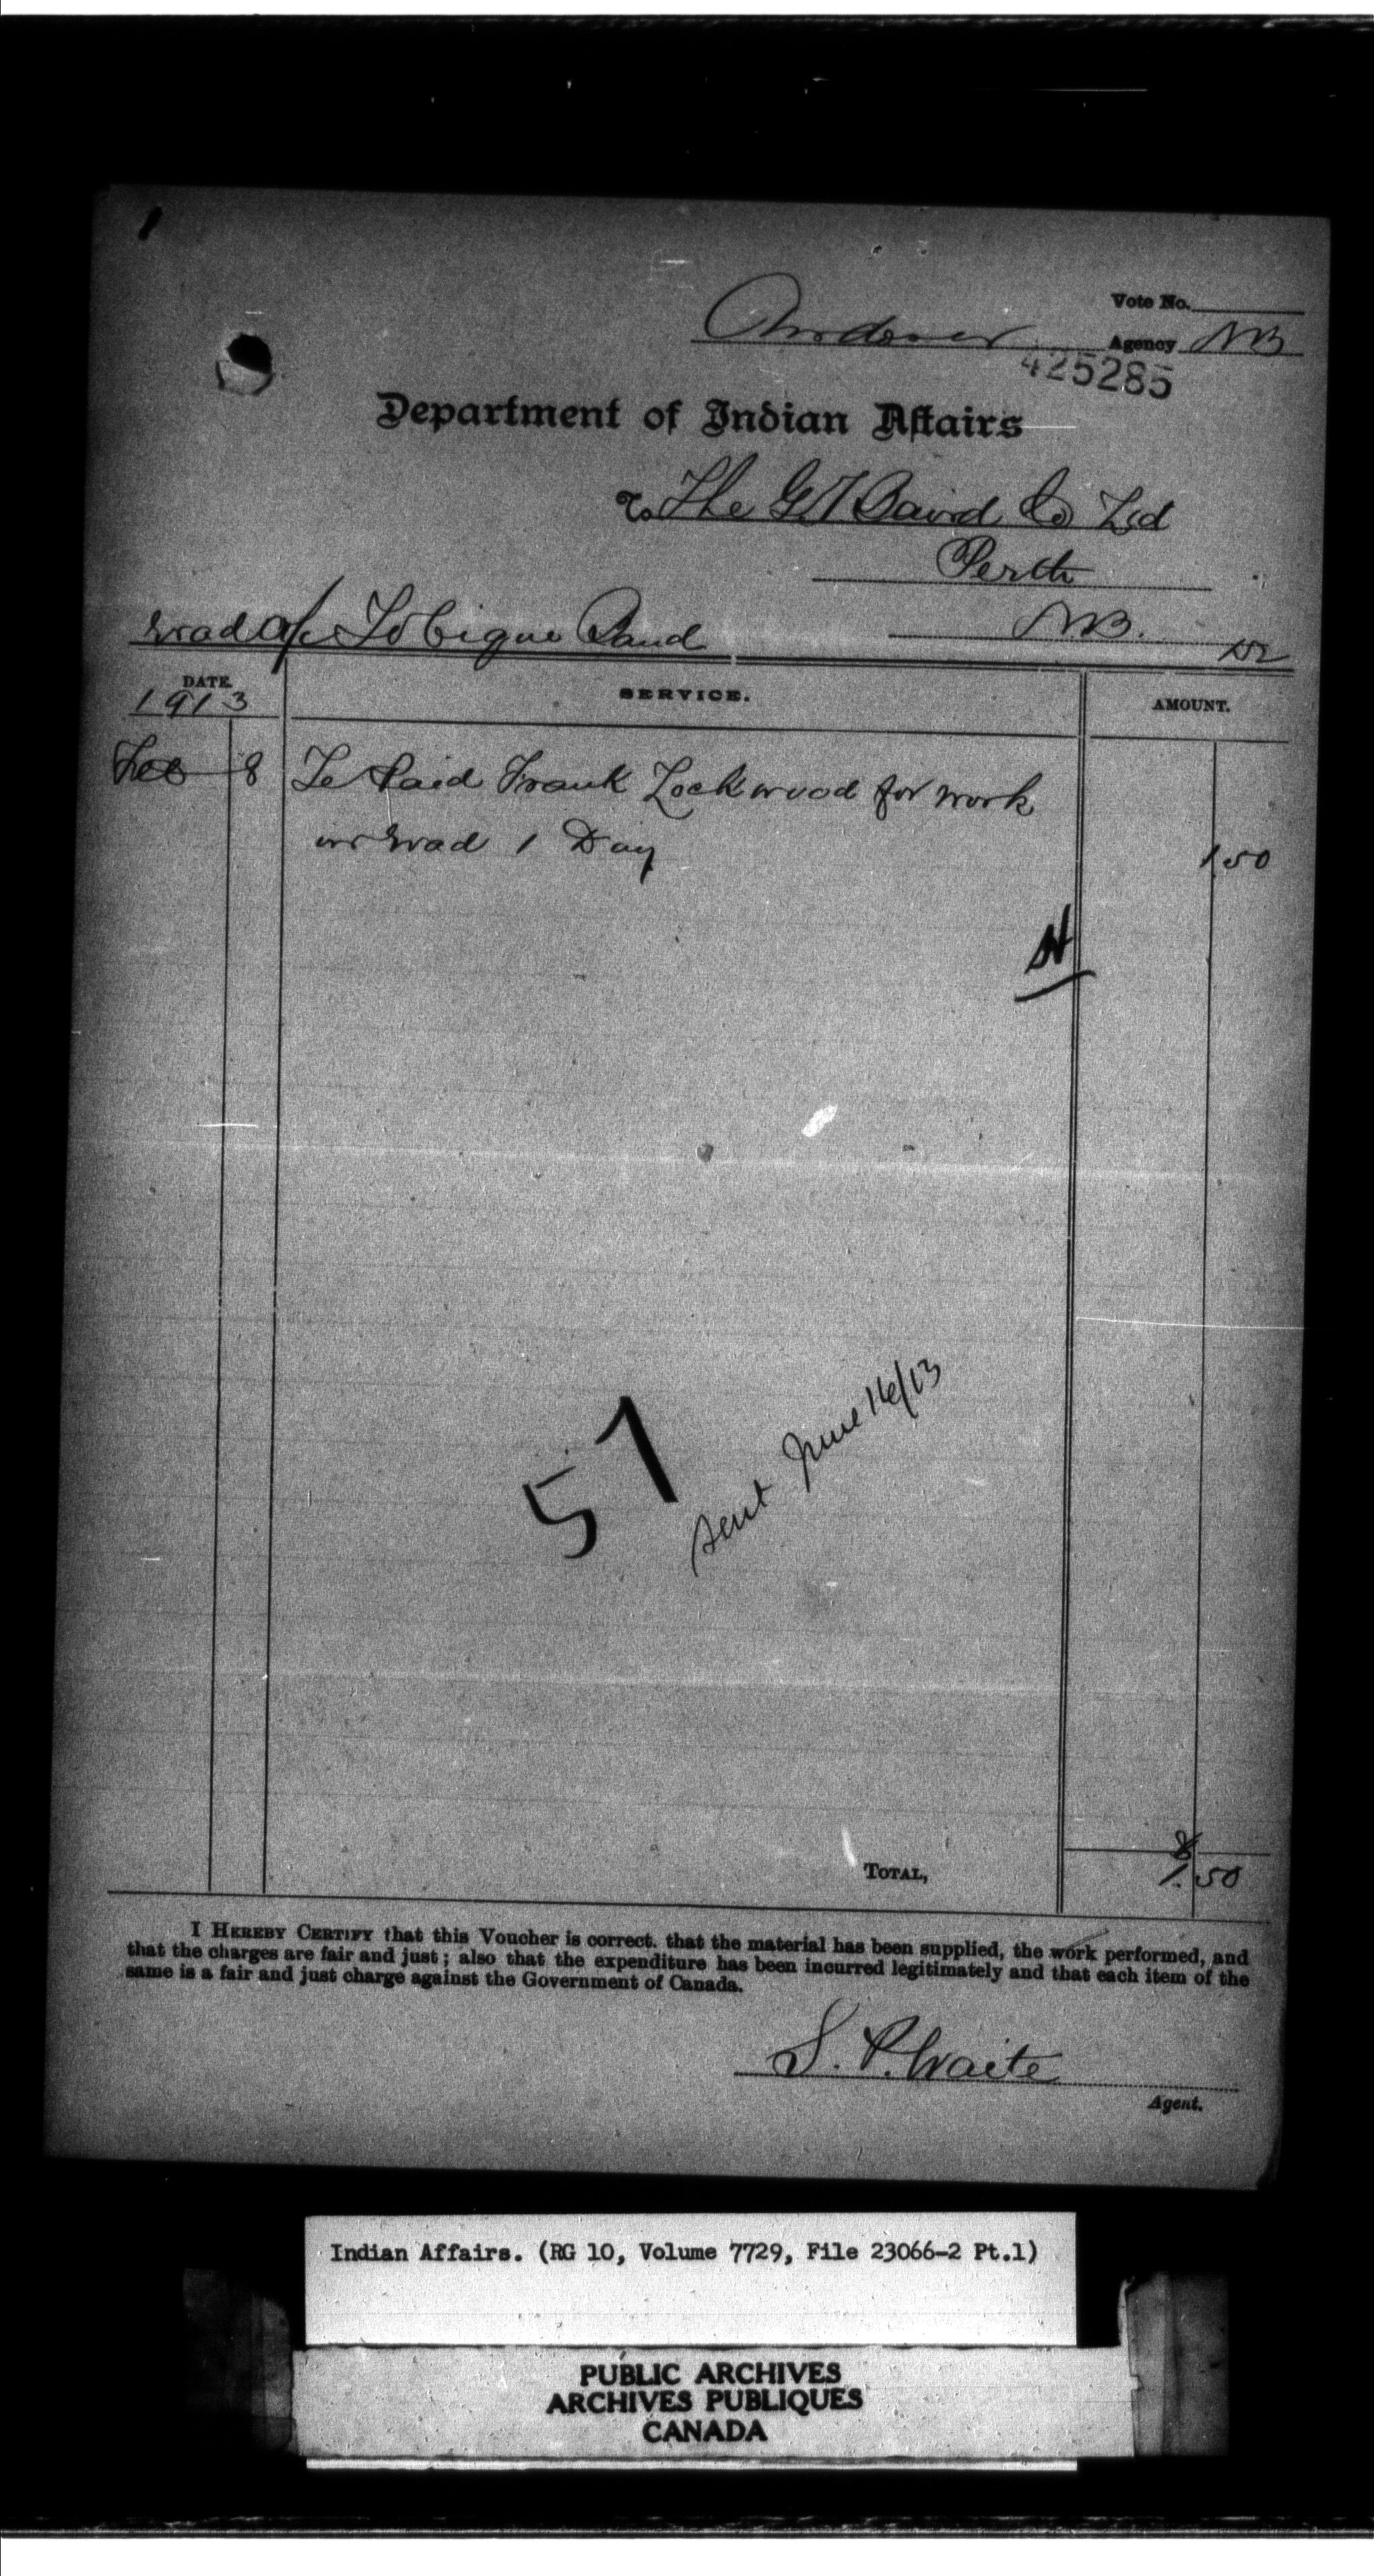 Vote No.
Andover Agency NB
425285
Department of Indian Affairs
To The G.T. Baird Co Ltd
Perth
NB.
road a/c Tobique Band Dr
DATE. SERVICE. AMOUNT.
1913
Feb 8 To Paid Frank Lockwood for work
on road 1 Day 1.50
57
sent June 16/13
TOTAL, 1.50
I HEREBY CERTIFY that this Voucher is correct. that the material has been supplied, the work performed, and
that the charges are fair and just; also that the expenditure has been incurred legitimately and that each item of the
same is a fair and just charge against the Government of Canada.
S. P. Waite
Agent.
Indian Affairs. (RG 10, Volume 7729, File 23066-2 Pt.1)
PUBLIC ARCHIVES
ARCHIVES PUBLIQUES
CANADA